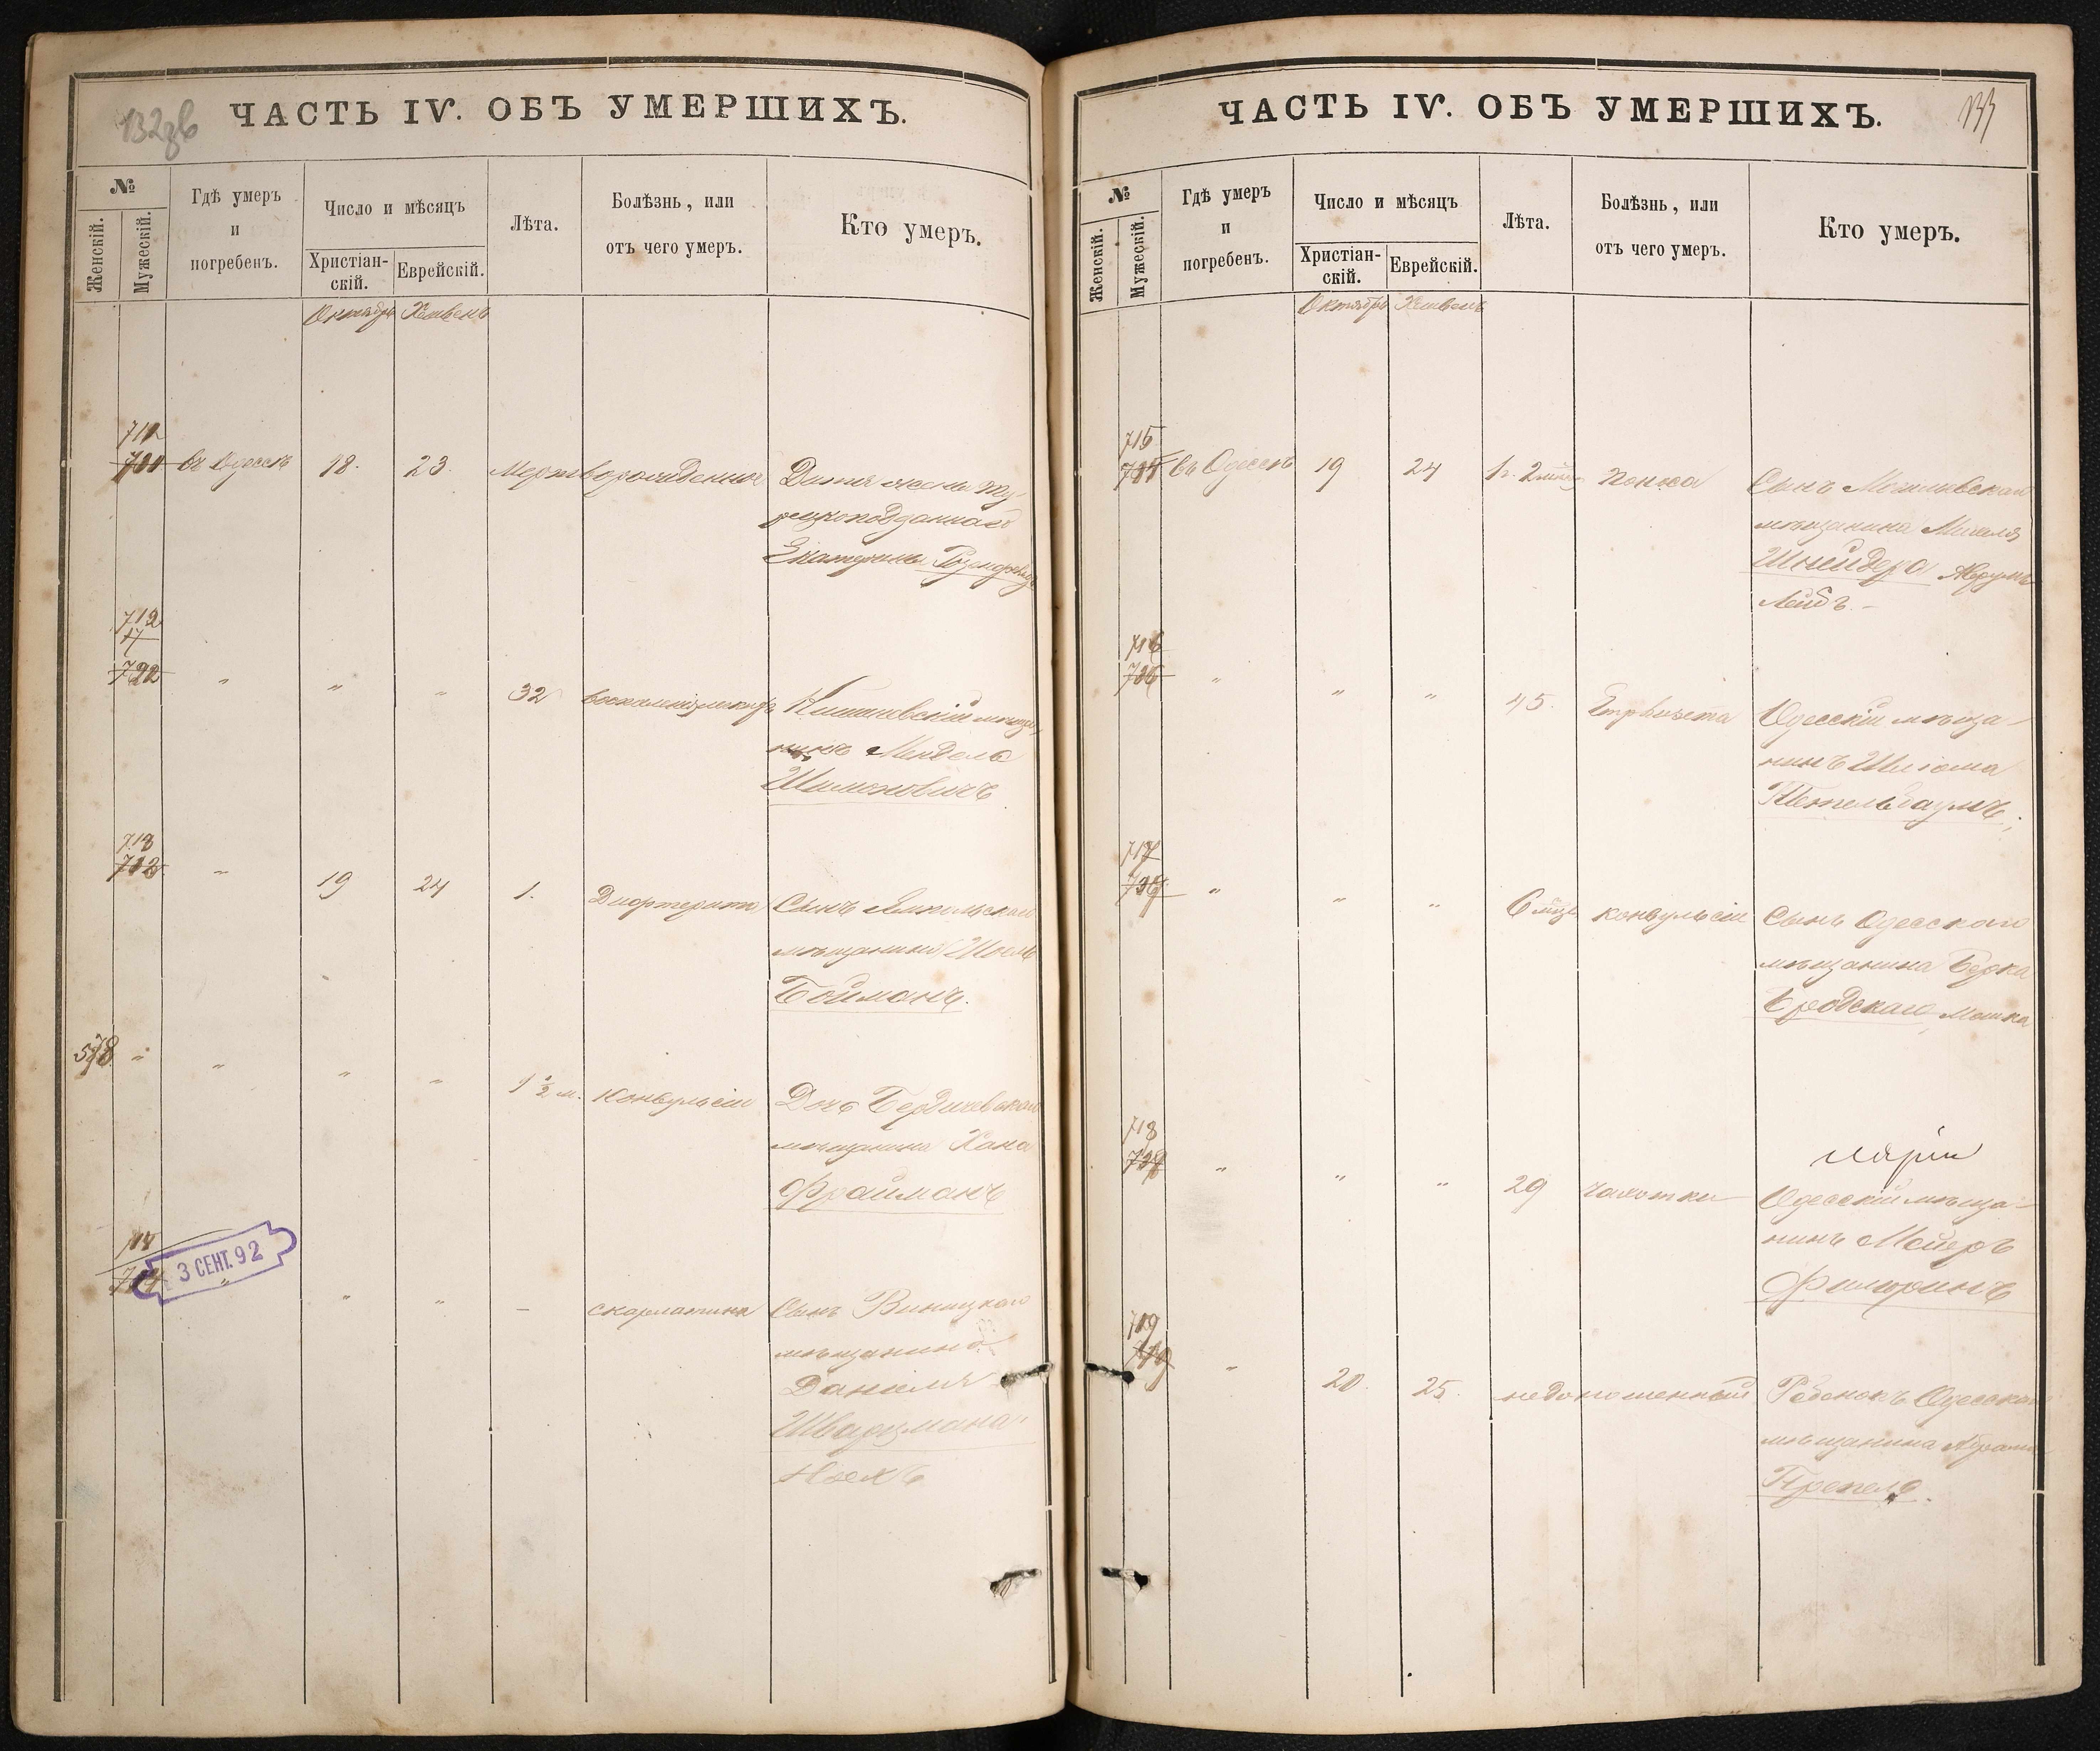 132 об
ЧАСТЬ IV. ОБЪ УМЕРШИХЪ.
№
Женскій.
Мужескій.
Гдѣ умеръ
и
погребенъ.
Число и мѣсяцъ
Христіан-
скій.
Еврейскій.
Лѣта.
Болѣзнь, или
отъ чего умеръ.
Кто умеръ.
Октябрь Хешвенъ
711
701 въ Одессѣ 18. 23. Мертворожденное Дитя жены Ту-
рецкоподданнаго
Екатерины
712
702 " " " 32 Кишиневскій мѣща-
нинъ Мендель
Шимоновичъ
713
703 " 19 24 1. Дифтеритъ Сынъ Ямпольскаго
мѣщанина
Бойманъ.
578 " " " " 1 1/2 м. Конвульсіи Дочь Бердичевскаго
мѣщанина Хана
Фрайманъ
714
704 " " " – скарлатина Сынъ Винницкаго
мѣщанина
Даніеля
Шварцмана
3 СЕНТ. 92
133
ЧАСТЬ IV. ОБЪ УМЕРШИХЪ.
№
Женскій.
Мужескій.
Гдѣ умеръ
и
погребенъ.
Число и мѣсяцъ
Христіан-
скій.
Еврейскій.
Лѣта.
Болѣзнь, или
отъ чего умеръ.
Кто умеръ.
Октябрь Хешвенъ
715
705 въ Одессѣ 19 24 1 г. 2 мѣц поноса Сынъ Могилевскаго
мѣщанина Михеля
Шнейдера Аврумъ
Лейбъ. –
716
706 " " " 45. Одесскій мѣща-
нинъ Шлiома
Тейтельбаумъ
717
707 " " " 6 мѣц конвульсіи Сынъ Одесскаго
мѣщанина Берка
Бродскаго Мошка
718
708 " " " 29 чахотки Одесскій мѣща-
нинъ Мейеръ
719
709 " 20. 25. недоношенный Ребенокъ Одесскаго
мѣщанина Абрама
Препель.